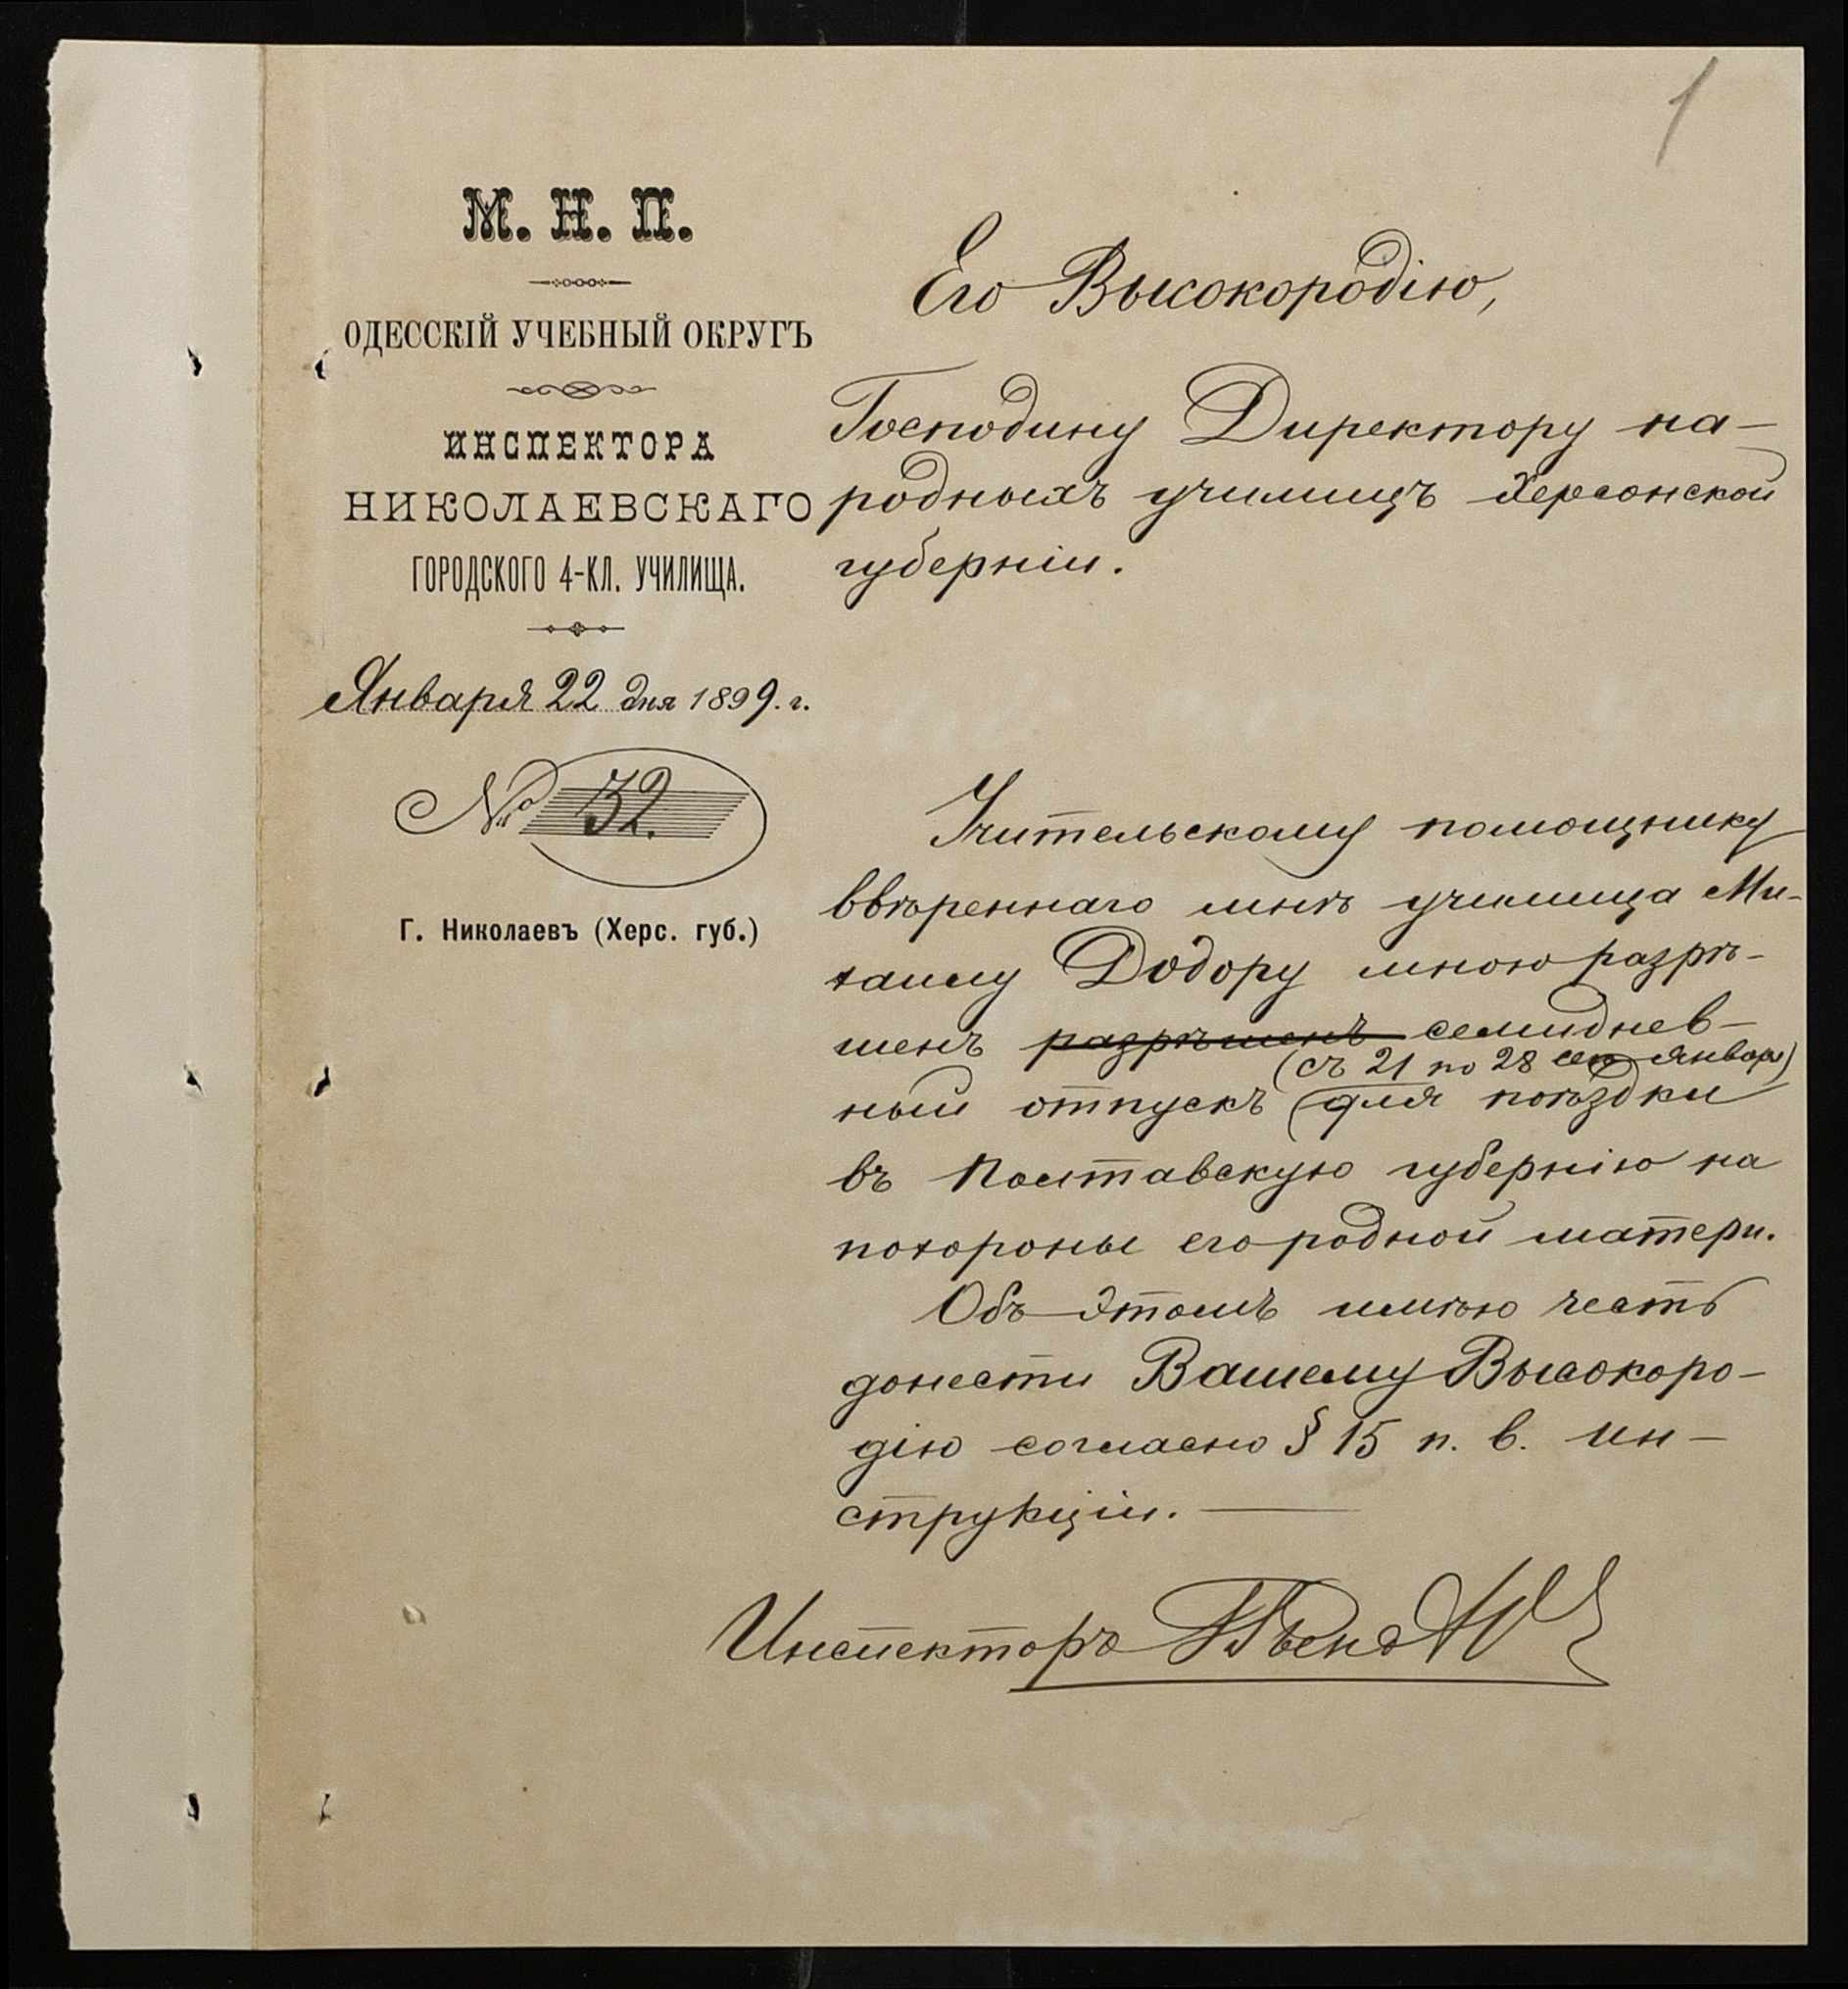 1
М. Н. П.
ОДЕССКІЙ УЧЕБНЫЙ ОКРУГЪ
ИНСПЕКТОРА
НИКОЛАЕВСКАГО
ГОРОДСКОГО 4-КЛ. УЧИЛИЩА.
Января 22 дня 1899. г.
№ 32.
Г. Николаевъ (Херс. губ.)
Его Высокородію,
Господину Директору на-
родныхъ училищъ Херсонской
губерніи.
Учительскому помощнику
ввѣреннаго мнѣ училища Ми-
хаилу Додору мною разрѣ-
шенъ разрѣшенъ семиднев-
(съ 21 по 28 сего Января)
ный отпускъ для поѣздки
въ Полтавскую губернію на
похороны его родной матери.
Объ этомъ имѣю честь
донести Вашему Высокоро-
дію согласно § 15 п. в. ин-
струкціи.
Инспекторъ